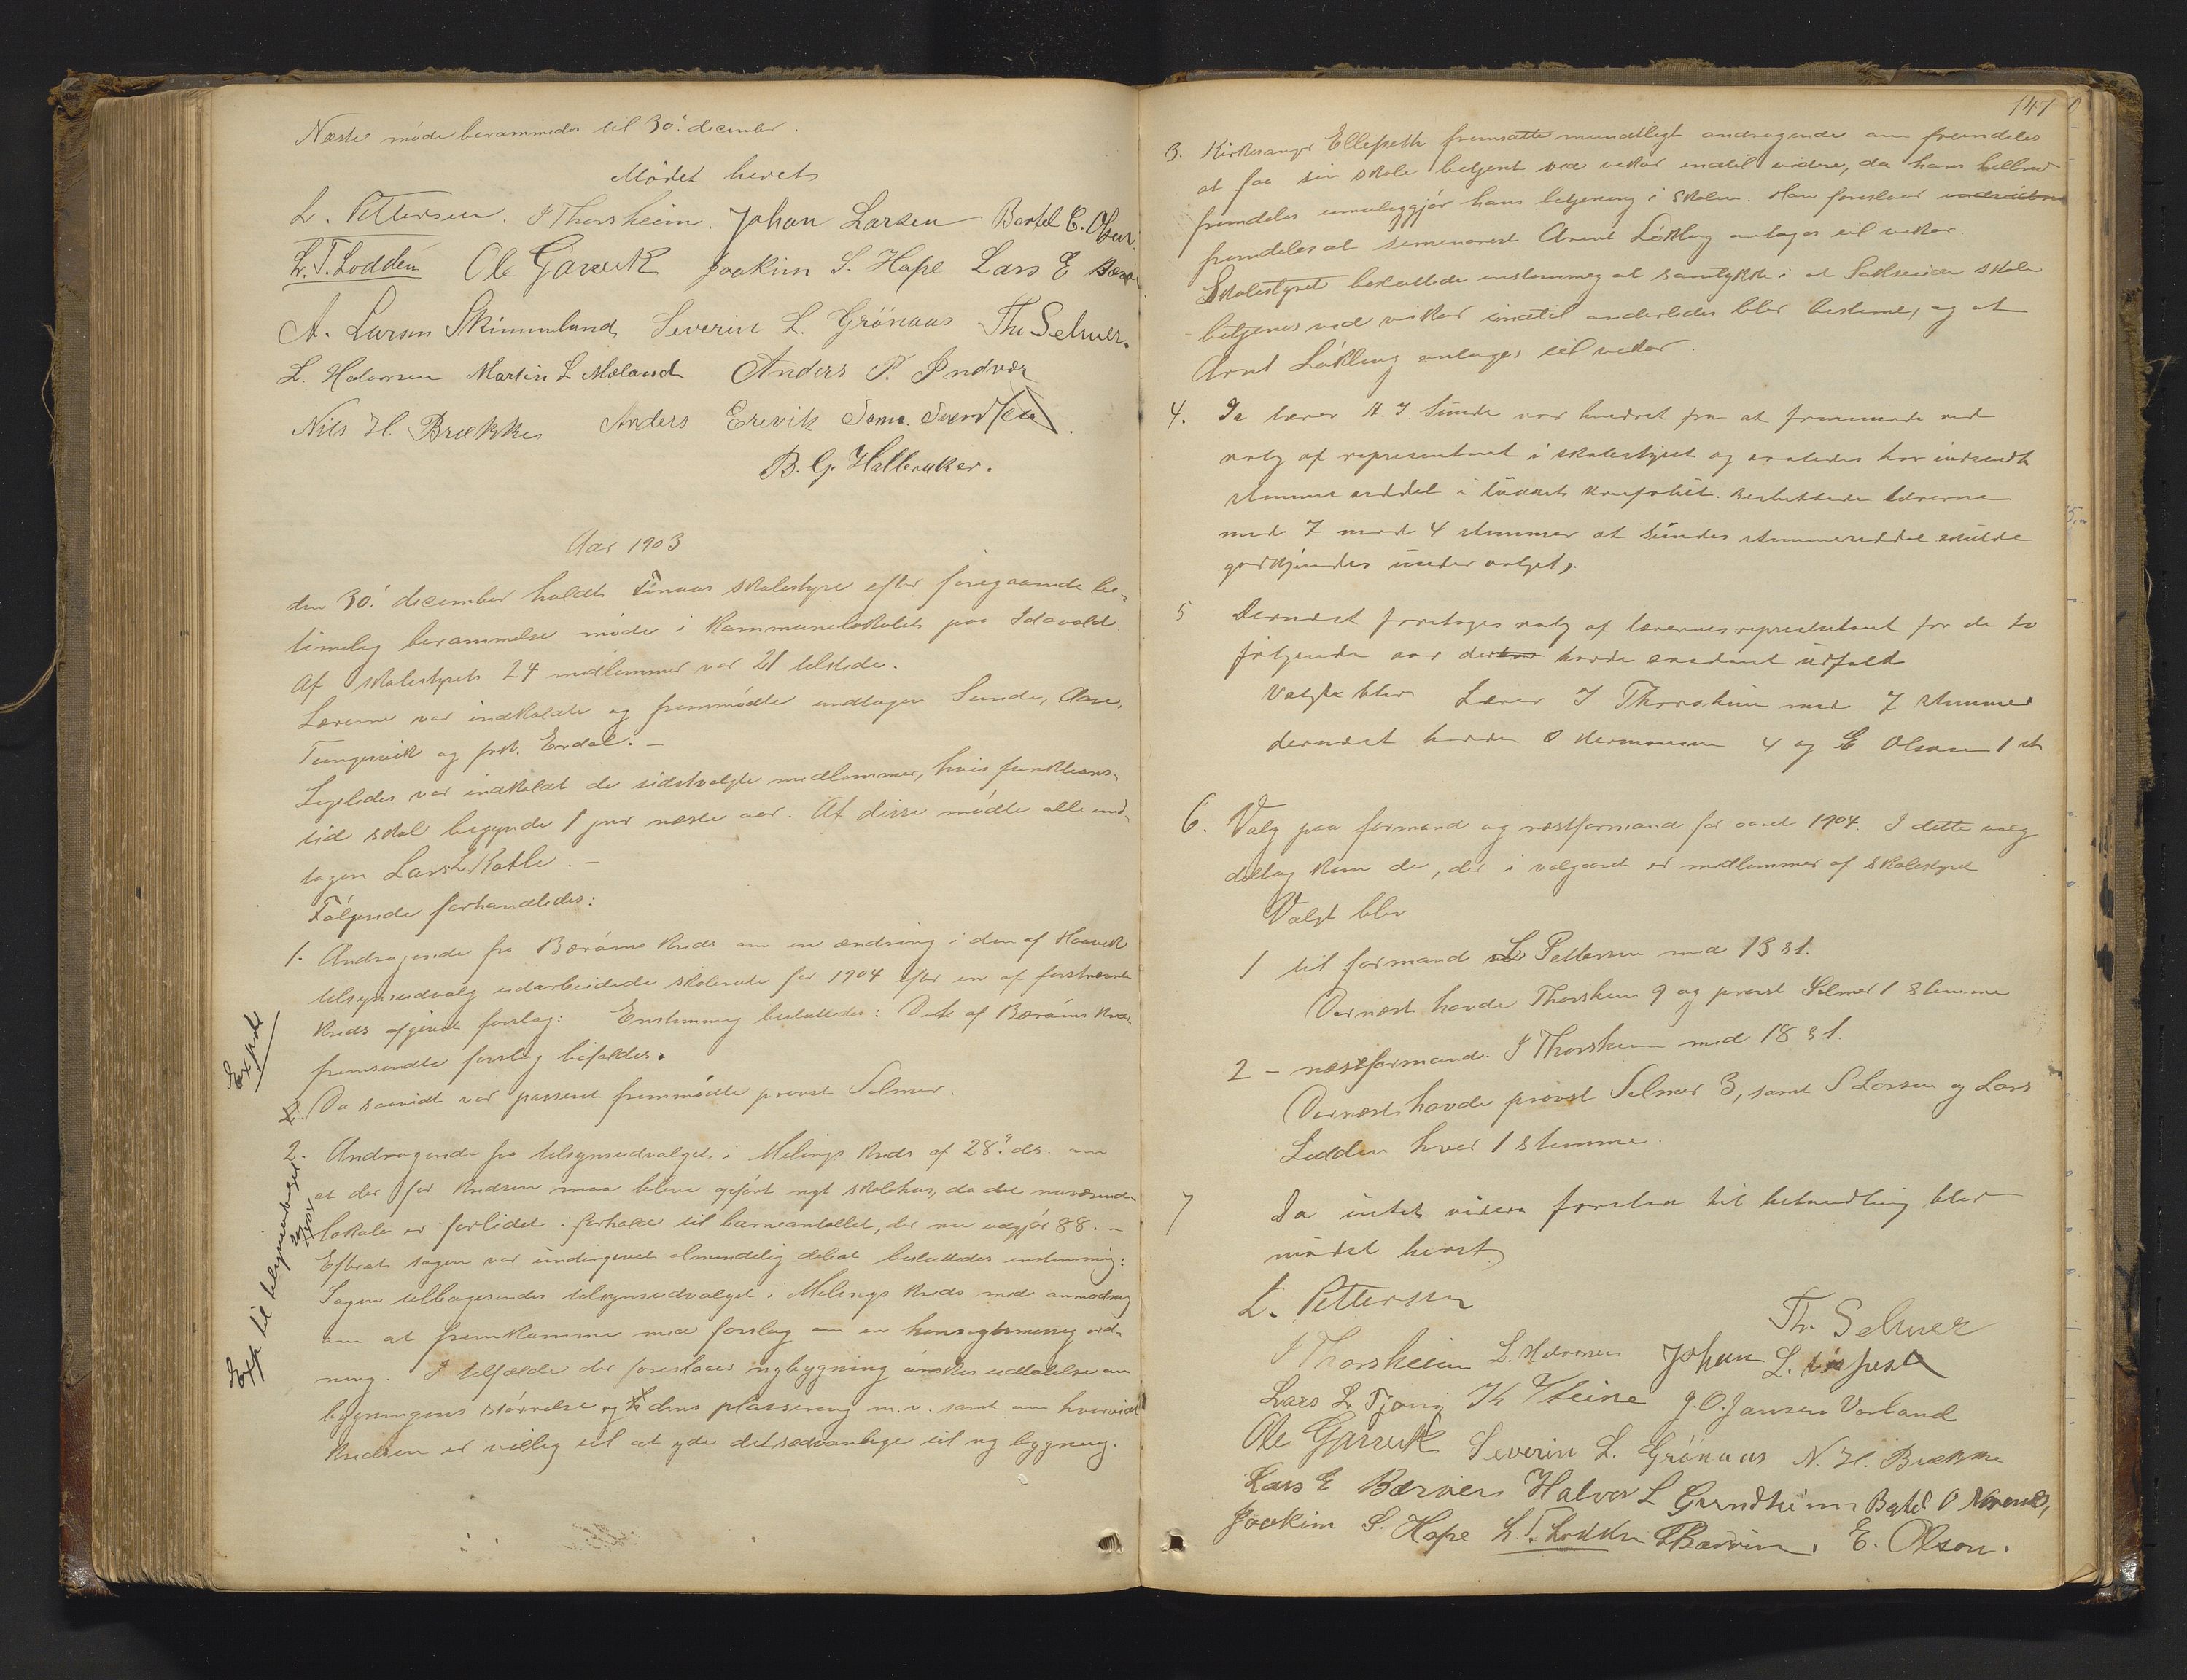 Næste møde berammedes til 30: december.
Mødet hevet
L. Pettersen. I Thorsheim. Johan Larsen Bertel E. Olsen.
L. T. Lodden Ole Garvik Joakim S. Hope Lars E Bærø
A. Larsen Skimmeland Severin L. Grönaas Th Selmer.
L. Halvorsen Martin L Mæland Anders P. Indvær
Nils H. Brække Anders Erevik Sams. Svendsen
B. G. Halleraker.
Aar 1903
den 30: december holdt Finaas skolestyre efter foregaaende be-
timelig berammelse møde i kommunelokalet paa Idavold.
Af skolestyrets 24 medlemmer var 21 tilstede.
Lærerne var indkaldte og fremmødte undtagen Sunde, Aase,
Tungesvik og frk. Erdal. —
Ligeledes var indkaldt de sidstvalgte medlemmer, hvis funktions-
tid skal begynde 1 jnr næste aar. Af disse mødte alle und-
tagen Lars L Katle. —
Følgende forhandledes:
1. Andragende fra Børøens kreds om en ændring i den af Haavik
tilsynsudvalg udarbeidede skolerute for 1904 efter en af førstnævnte
kreds afgivet forslag: Enstemmig besluttedes: Det af Børøens kreds
fremsendte forslag bifaldes.
Exped
2. Da saavidt var passeret fremmødte provst Selmer.
2. Andragende fra tilsynsudvalget i Melings kreds af 28: ds. om
at der for kredsen maa blive opført nyt skolehus, da det nuværende
lokale er forlidet i forhold til barneantallet, der nu udgjør 88. —
Efterat sagen var undergivet almindelig debat besluttedes enstemmig:
Sagen tilbagesendes tilsynsudvalget i Melings kreds med anmodning
om at fremkomme med forslag om en hensigtsmessig ord-
ning. I tilfælde der foreslaaes nybygning ønskes udtalelse om
bygningens størrelse og dens plassering m.v. samt om hvorvidt
kredsen er villig til at yde det sædvanlige til ny bygning.
Exp til
147
3. Kirkesanger Ellefseth fremsatte mundtligt andragende om fremdeles
at faa sin skole betjent ved vikar indtil videre, da hans helbred
fremdeles umuliggjør hans betjening i skolen. Han foreslaar
fremdeles at seminarist Arent Løkling antages til vikar.
Skolestyret besluttede enstemmig at samtykke i at skole
betjenes ved vikar indtil anderledes blir bestemt, og at
Arnt Løkling antages til vikar.
4. Da lærer N. J. Sunde var hindret fra at fremmøde ved
valg af representant i skolestyret og saaledes har indsendt
stemmeseddel i lukket konvolut. Besluttede lærerne
med 7 mod 4 stemmer at Sundes stemmeseddel skulde
godkjendes under valget.
5 Dernæst foretoges valg af lærernes representant for de to
følgende aar der havde saadant udfald
Valgt blev Lærer I Thorsheim med 7 stemmer
dernæst havde O Hermansen 4 og E Olsson 1 st
6. Valg paa formand og næstformand for aaret 1904. I dette valg
deltog kun de, der i valgaaret er medlemmer af skolestyret
Valgt blev
1 til formand L Pettersen med 13 st.
Dernæst havde Thorsheim 9 og provst Selmer 1 stemme
2 - næstformand. I Thorsheim med 18 st.
Dernæst havde provst Selmer 3, samt S Larsen og Lars
Lodden hver 1 stemme.
7 Da intet videre forelaa til behandling blev
mødet hevet
L. Pettersen
Th. Selmer
I Thorsheim L. Halvorsen Johan L.
Lars L. Tjong K Steine J. O. Jansen Vorland
Ole Garvik Severin L. Grönaas N. H. Brække
Lars E Bærøen Halvor L Grindheim Bertel O
Joakim S. Hope L. T. Lodden E. Olson.